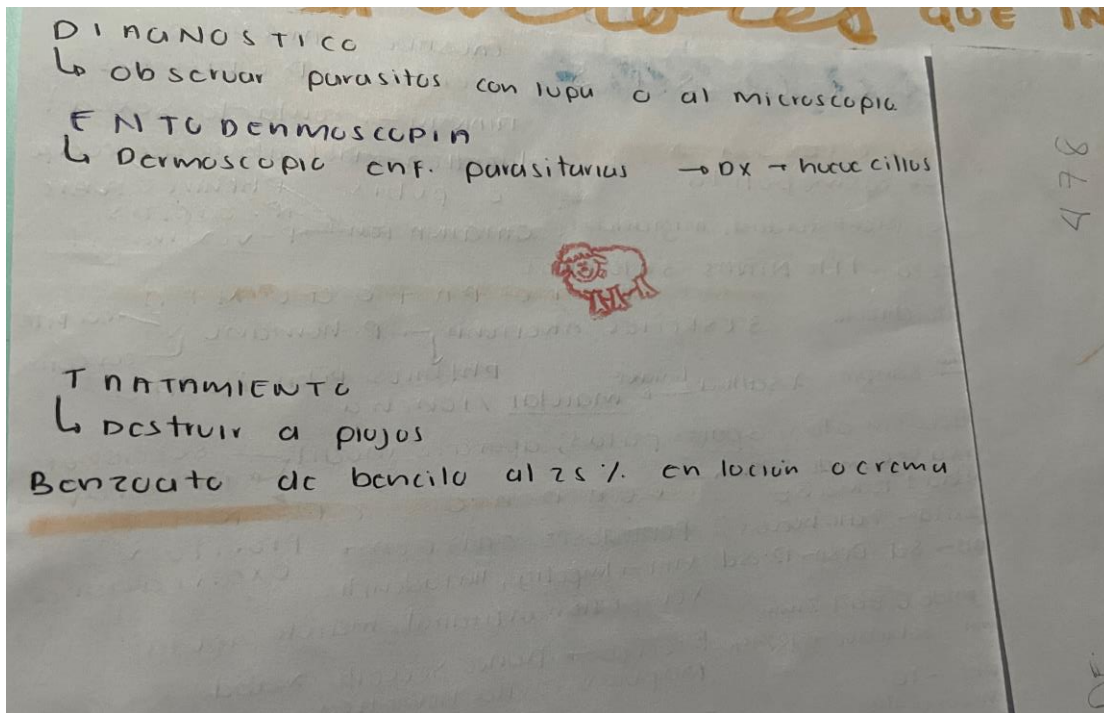 QUE IN
DIAGNOSTICO
↳ observar parasitos con lupa o al microscopio
ENTODERMOSCOPIA
↳ Dermoscopia enf. parasitarias → DX →
478
TRATAMIENTO
↳ Destruir a piojos
Benzoato de bencilo al 25 %. en loción o crema